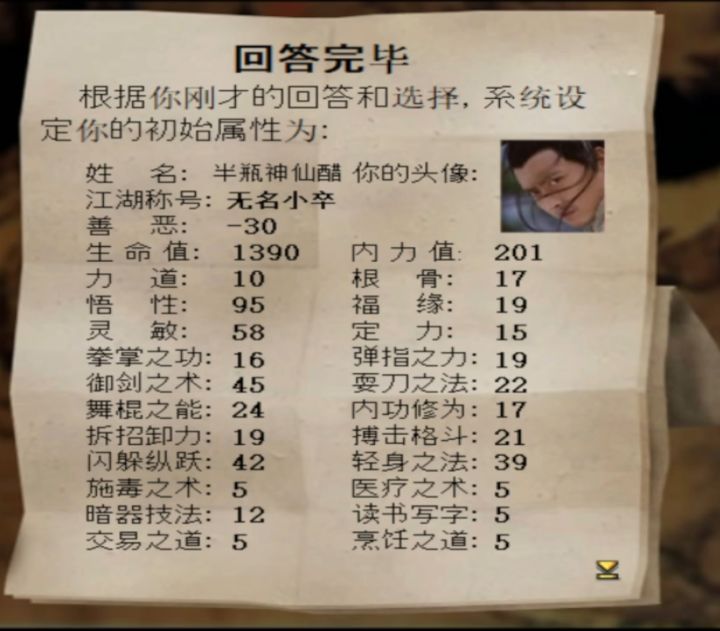 回答完毕
根据你刚才的回答和选择, 系统设
定你的初始属性为:
姓 名: 半瓶神仙醋 你的头像:
江湖称号: 无名小卒
善 恶: -30
生命值: 1390 内力值: 201
力 道: 10 根 骨: 17
悟 性: 95 福 缘: 19
灵 敏: 58 定 力: 15
拳掌之功: 16 弹指之力: 19
御剑之术: 45 耍刀之法: 22
舞棍之能: 24 内功修为: 17
拆招卸力: 19 搏击格斗: 21
闪躲纵跃: 42 轻身之法: 39
施毒之术: 5 医疗之术: 5
暗器技法: 12 读书写字: 5
交易之道: 5 烹饪之道: 5